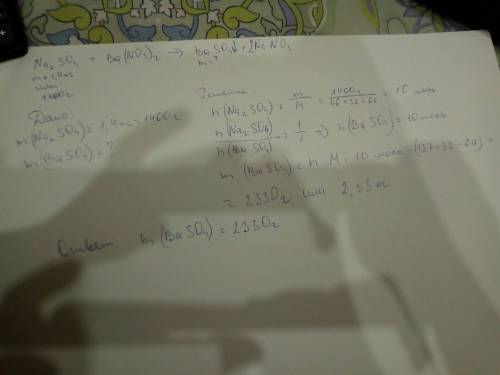 Na₂SO₄ + Ba(NO₃)₂ → BaSO₄↓ + 2NaNO₃
m=1,4кг m-?
или
1400г
Дано:
m(Na₂SO₄)=1,4кг=1400г
m(BaSO₄)=?
Решение:
n(Na₂SO₄)=m/M=1400г/(46+32+64)=10 моль
n(Na₂SO₄)/n(BaSO₄)=1/1 => n(BaSO₄)=10моль
m(BaSO₄)=n·M=10 моль·(137+32+64)=
=2330г или 2,33кг
Ответ m(BaSO₄)=2330г